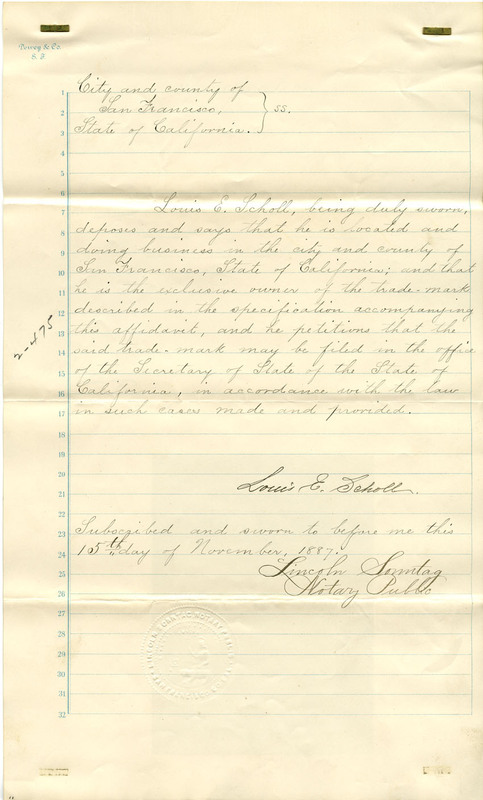 Dewey & Co.
S. F.
City and county of
San Francisco, } ss.
State of California.
Louis E. Scholl, being duly sworn,
deposes and says that he is located and
doing business in the city and county of
San Francisco, State of California; and that
he is the exclusive owner of the trade-mark
described in the specification accompanying
this affidavit, and he petitions that the
said trade-mark may be filed in the office
of the Secretary of State of the State of
California, in accordance with the law
in such cases made and provided.
2-475
Louis E. Scholl.
Subscribed and sworn to before me this
15th day of November, 1887.
Lincoln Sonntag
Notary Public
1
2
3
4
5
6
7
8
9
10
11
12
13
14
15
16
17
18
19
20
21
22
23
24
25
26
27
28
29
30
31
32